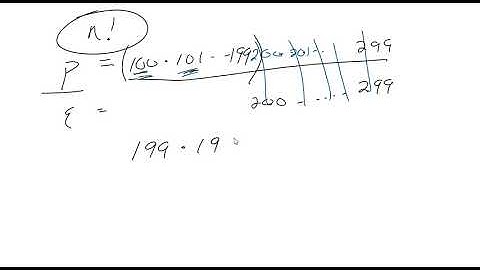 n!
P = (100 · 101 · · 199) 200 · 201 · · 299
q = 200 · · · · · 299
199 · 19